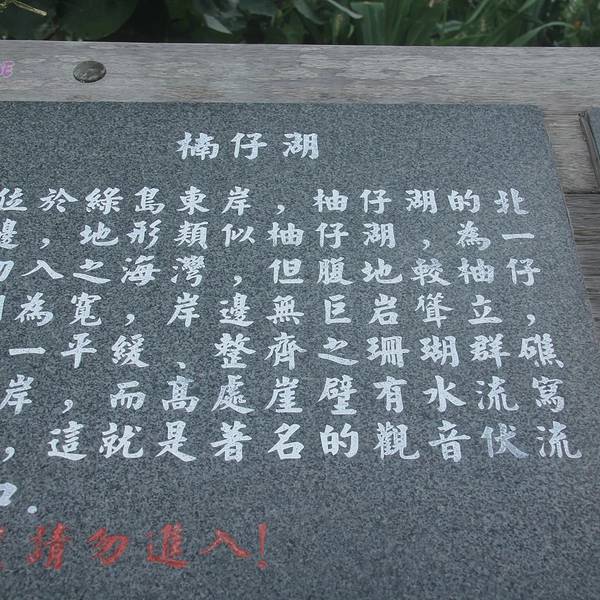 楠仔湖
位於綠島東岸，柚仔湖的北
邊，地形類似柚仔湖，為一
入之海灣，但腹地較柚仔
為寬，岸邊無巨岩聳立，
一平緩、整齊之珊瑚群礁
岸，而高處崖壁有水流寫
，這就是著名的觀音伏流
口.
請勿進入!